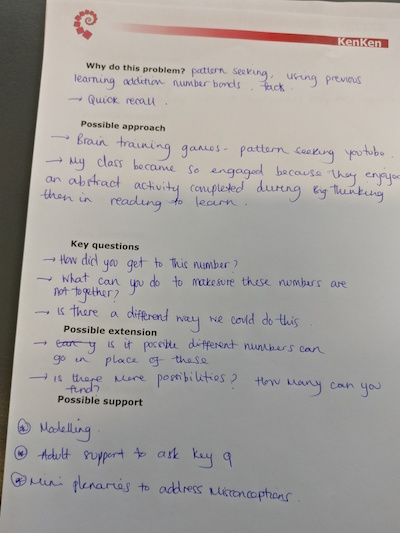 KenKen
Why do this problem? pattern seeking, using previous
learning addition number bonds. fack.
→ Quick recall.
Possible approach
→ Brain training games - pattern seeking youtube.
→ My class became so engaged because they enjoyed
an abstract activity completed during Big Thinking
then in reading to learn.
Key questions
→ How did you get to this number?
→ What can you do to make sure these numbers are
not together?
→ Is there a different way we could do this.
Possible extension
→ can y Is it possible different numbers can
go in place of these
→ Is there more possibilities? How many can you
find?
Possible support
* Modelling.
* Adult support to ask key q
* Mini plenaries to address misconceptions.